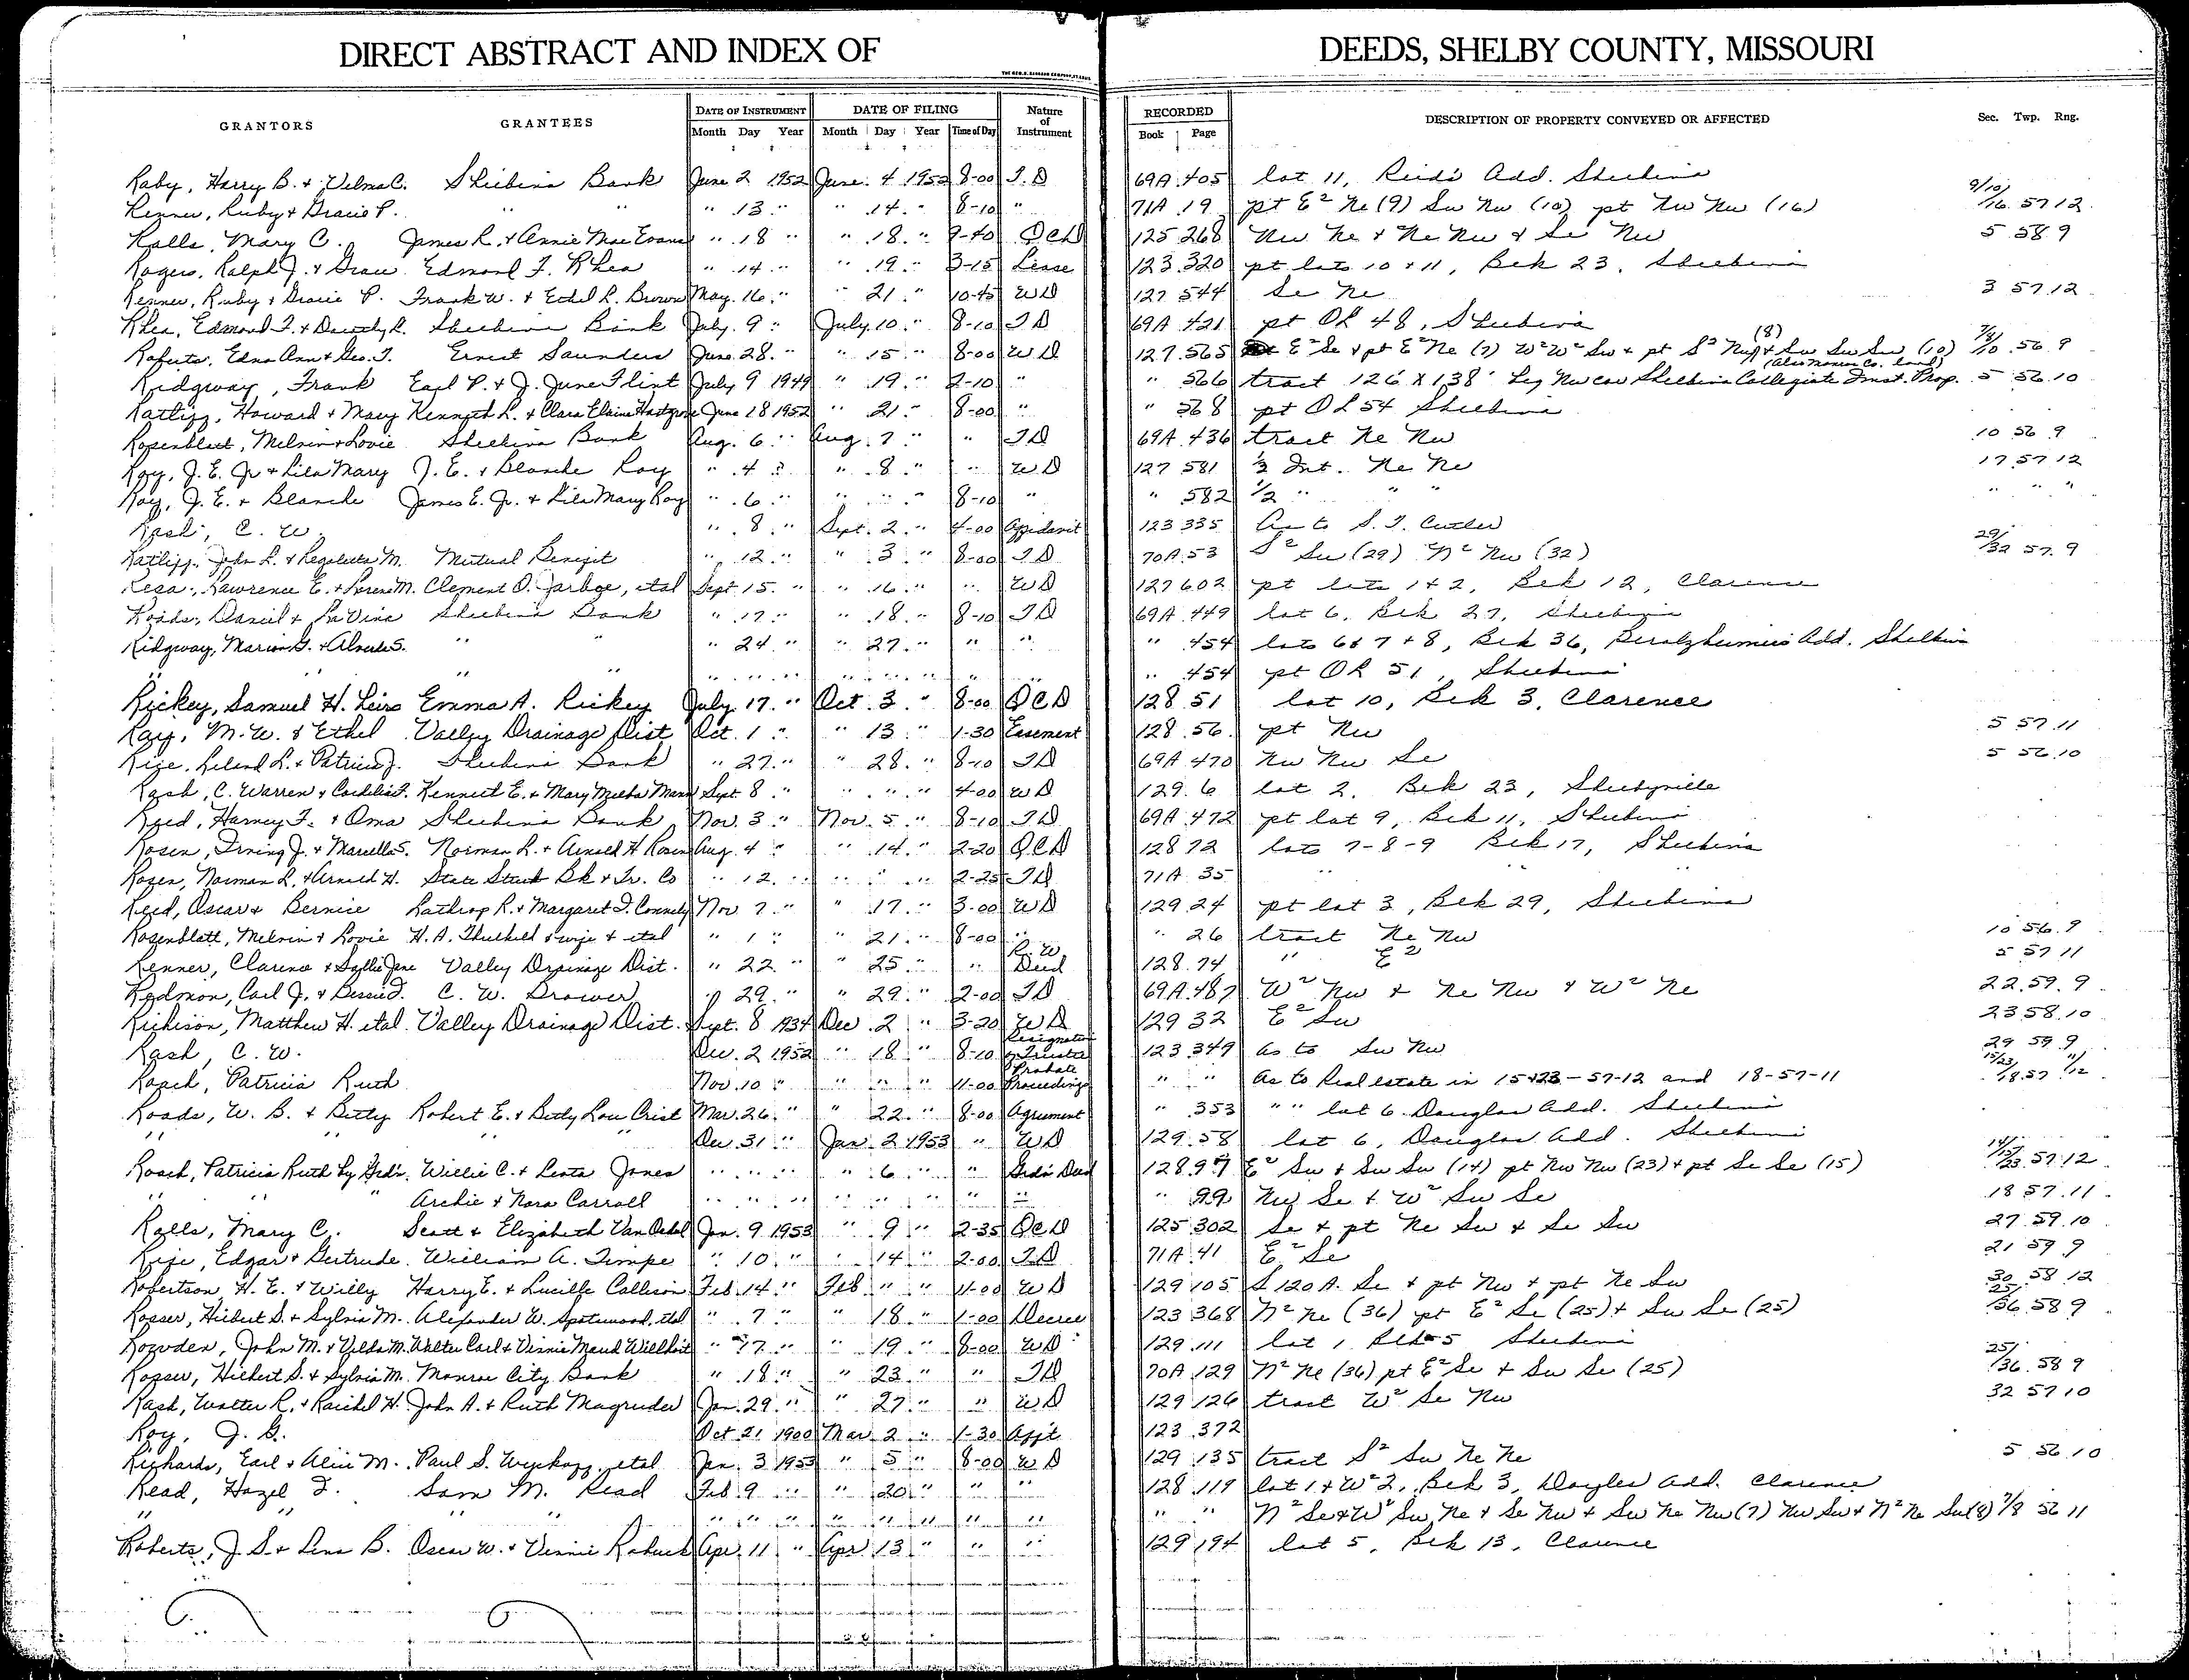 DIRECT ABSTRACT AND INDEX OF DEEDS, SHELBY COUNTY, MISSOURI
GRANTORS GRANTEES DATE OF INSTRUMENT DATE OF FILING Nature of Instrument RECORDED DESCRIPTION OF PROPERTY CONVEYED OR AFFECTED Sec. Twp. Rng.
Month Day Year Month Day Year Time of Day Book Page
Raby, Harry B. + Velma C. Shelbina Bank June 2 1952 June 4 1952 8-00 T.D 69A 405 lot 11, Reids Add. Shelbina
Renner, Ruby + Gracie P. " " " 13 " " 14 " 8-10 " 71A 19 pt E² Ne (9) Sw Nw (10) pt Nw Nw (16) 9/10/16 57 12
Ralls, Mary C. James R. + Annie Mae Evans " 18 " " 18 " 9-40 QCD 125 268 Nw Ne + Ne Nw + Se Nw 5 58 9
Rogers, Ralph J. + Grace Edmond F. Rhea " 14 " " 19 " 3-15 Lease 123 320 pt lots 10 + 11, Blk 23, Shelbina
Renner, Ruby + Gracie P. Frank W. + Ethel R. Brown May 16 " " 21 " 10-45 WD 127 544 Se Ne 3 57 12
Rhea, Edmond F. + Shelbina Bank July 9 " July 10 " 8-10 TD 69A 421 pt OL 48, Shelbina
Roberts, Edna Ann + Geo. T. Ernest Saunders June 28 " " 15 " 8-00 WD 127 565 E² Se + pt E² Ne (7) W² W² Sw + pt S² Nw (8) + Sw Sw Sw (10) 7/8/10 56 9
(Also Monroe Co. land)
Ridgway, Frank Earl P. + J. June Flint July 9 1949 " 19 " 2-10 " " 566 tract 126 X 138' beg Nw cor Shelbina Collegiate Inst. Prop. 5 56 10
Ratliff, Howard + Mary Kenneth L. + Clara Elaine June 18 1952 " 21 " 8-00 " " 568 pt OL 54 Shelbina
Rosenblatt, Melvin + Lovie Shelbina Bank Aug. 6 " Aug. 7 " " TD 69A 436 tract Ne Nw 10 56 9
Roy, J. E. Jr + Lila Mary J. E. + Blanche Roy " 4 " " 8 " " WD 127 581 ½ Int. Ne Ne 17 57 12
Roy, J. E. + Blanche James E. Jr. + Lila Mary Roy " 6 " " " " 8-10 " " 582 1/2 " " " " " "
Rash, C. W. " 8 " Sept. 2 " 4-00 Affidavit 123 335 As to S. T. Cutler
Ratliff, John L. + M. Mutual Benefit " 12 " " 3 " 8-00 TD 70A 53 S² Sw (29) N² Nw (32) 29/32 57 9
Resa, Lawrence E. + Lorene M. Clement O. Jarboe, etal Sept 15 " " 16 " " WD 127 602 pt lots 1 + 2, Blk 12, Clarence
Roads, Daniel + LaVina Shelbina Bank " 17 " " 18 " 8-10 TD 69A 449 lot 6, Blk 27, Shelbina
Ridgway, Marion G. + S. " " " 24 " " 27 " " " " 454 lots 6 + 7 + 8, Blk 36, Add. Shelbina
" " " " " " " " " " " " 454 pt OL 51, Shelbina
Rickey, Samuel H. Heirs Emma A. Rickey July 17 " Oct. 3 " 8-00 QCD 128 51 lot 10, Blk 3, Clarence
Ray, M. W. + Ethel Valley Drainage Dist Oct. 1 " " 13 " 1-30 Easement 128 56 pt Nw 5 57 11
Rize, Leland L. + Patricia J. Shelbina Bank " 27 " " 28 " 8-10 TD 69A 470 Nw Nw Se 5 56 10
Rash, C. Warren + Cordelia F. Kenneth E. + Mary Melba Mann Sept 8 " " " " 4-00 WD 129 6 lot 2, Blk 23, Shelbyville
Reed, Harvey F. + Oma Shelbina Bank Nov. 3 " Nov. 5 " 8-10 TD 69A 472 pt lot 9, Blk 11, Shelbina
Rosen, Irving J. + Marcella S. Norman L. + Arnold H. Rosen Aug. 4 " " 14 " 2-20 QCD 128 72 lots 7-8-9 Blk 17, Shelbina
Rosen, Norman L. + Arnold H. State Street Bk + Tr. Co " 12 " " " " 2-25 TD 71A 35 " " "
Reed, Oscar + Bernice Lathrop R. + Margaret I. Connely Nov 7 " " 17 " 3-00 WD 129 24 pt lot 3, Blk 29, Shelbina
Rosenblatt, Melvin + Lovie H. A. Threlkeld + wife + etal " 1 " " 21 " 8-00 " " 26 tract Ne Nw 10 56 9
Renner, Clarence + Sallie Jane Valley Drainage Dist. " 22 " " 25 " " R. W. Deed 128 74 " E² 5 57 11
Redmon, Carl J. + Bessie D. C. W. Drower " 29 " " 29 " 2-00 TD 69A 487 W² Nw + Ne Nw + W² Ne 22 59 9
Richison, Matthew H. etal Valley Drainage Dist. Sept. 8 1934 Dec 2 " 3-20 WD 129 32 E² Sw 23 58 10
Rash, C. W. Dec. 2 1952 " 18 " 8-10 Resignation of Trustee 123 349 as to Sw Nw 29 59 9
Roach, Patricia Ruth Nov. 10 " " " " 11-00 Probate Proceedings " " As to Real estate in 15+23-57-12 and 18-57-11 15/23/18 57 11/12
Roads, W. B. + Betty Robert E. + Betty Lou Crist Mar. 26 " " 22 " 8-00 Agreement " 353 " " lot 6 Douglas Add. Shelbina
" " " " Dec 31 " Jan. 2 1953 " WD 129 58 lot 6, Douglas Add. Shelbina
Roach, Patricia Ruth by Grd'n. Willie C. + Leota Jones " " " " 6 " " Grdn Deed 128 97 E² Sw + Sw Sw (14) pt Nw Nw (23) + pt Se Se (15) 14/15/23 57 12
" " " Archie + Nora Carroll " " " " " " " " " 99 Nw Se + W² Sw Se 18 57 11
Ralls, Mary C. Scott + Elizabeth Van Osdol Jan. 9 1953 " 9 " 2-35 QCD 125 302 Se + pt Ne Sw + Se Sw 27 59 10
Rize, Edgar + Gertrude William A. Timpe " 10 " " 14 " 2-00 TD 71A 41 E² Se 21 59 9
Robertson, H. E. + Willy Harry E. + Lucille Callison Feb. 14 " Feb " " 11-00 WD 129 105 S 120 A. Se + pt Nw + pt Ne Sw 30 58 12
Rosser, Hilbert S. + Sylvia M. Alexander W. Spotswood, etal " 7 " " 18 " 1-00 Decree 123 368 N² Ne (36) pt E² Se (25) + Sw Se (25) 25/36 58 9
Rowden, John M. + Velda M. Walter Carl + Vinnie Maud Willhoit " 17 " " 19 " 8-00 WD 129 111 lot 1 Blk 5 Shelbina
Rosser, Hilbert S. + Sylvia M. Monroe City Bank " 18 " " 23 " " TD 70A 129 N² Ne (36) pt E² Se + Sw Se (25) 25/36 58 9
Rash, Walter R. + Raichel H. John A. + Ruth Magruder Jan. 29 " " 27 " " WD 129 126 tract W² Se Nw 32 57 10
Roy, J. G. Oct 21 1900 Mar. 2 " 1-30 Aff't 123 372
Richards, Earl + Alice M. Paul S. Wyckoff, etal Jan. 3 1953 " 5 " 8-00 WD 129 135 tract S² Sw Ne Ne 5 56 10
Read, Hazel F. Sam M. Read Feb. 9 " " 20 " " " 128 119 lot 1 + W² 2, Blk 3, Douglas Add. Clarence
" " " " " " " " " " " " " N² Se + W² Sw Ne + Se Nw + Sw Ne Nw (7) Nw Sw + N² Ne Sw (8) 7/8 56 11
Roberts, J. S. + Lena B. Oscar W. + Vinnie Robuck Apr. 11 " Apr 13 " " " 129 194 lot 5, Blk 13, Clarence